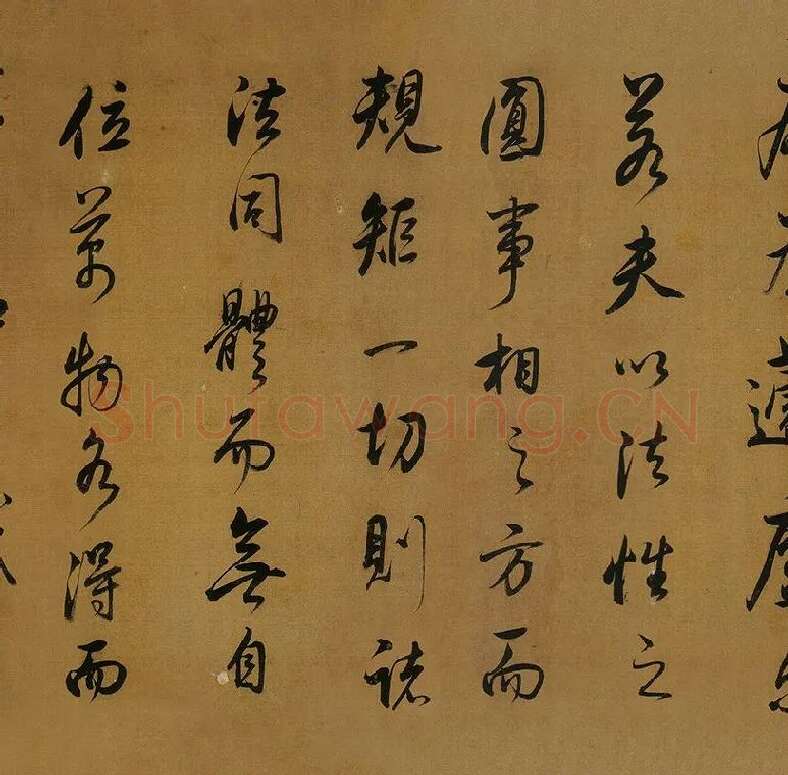 蘧廬
若夫以法性之
圓事相之方而
規矩一切則諸
法同體而無自
位萬物各得而
Shufawang.CN